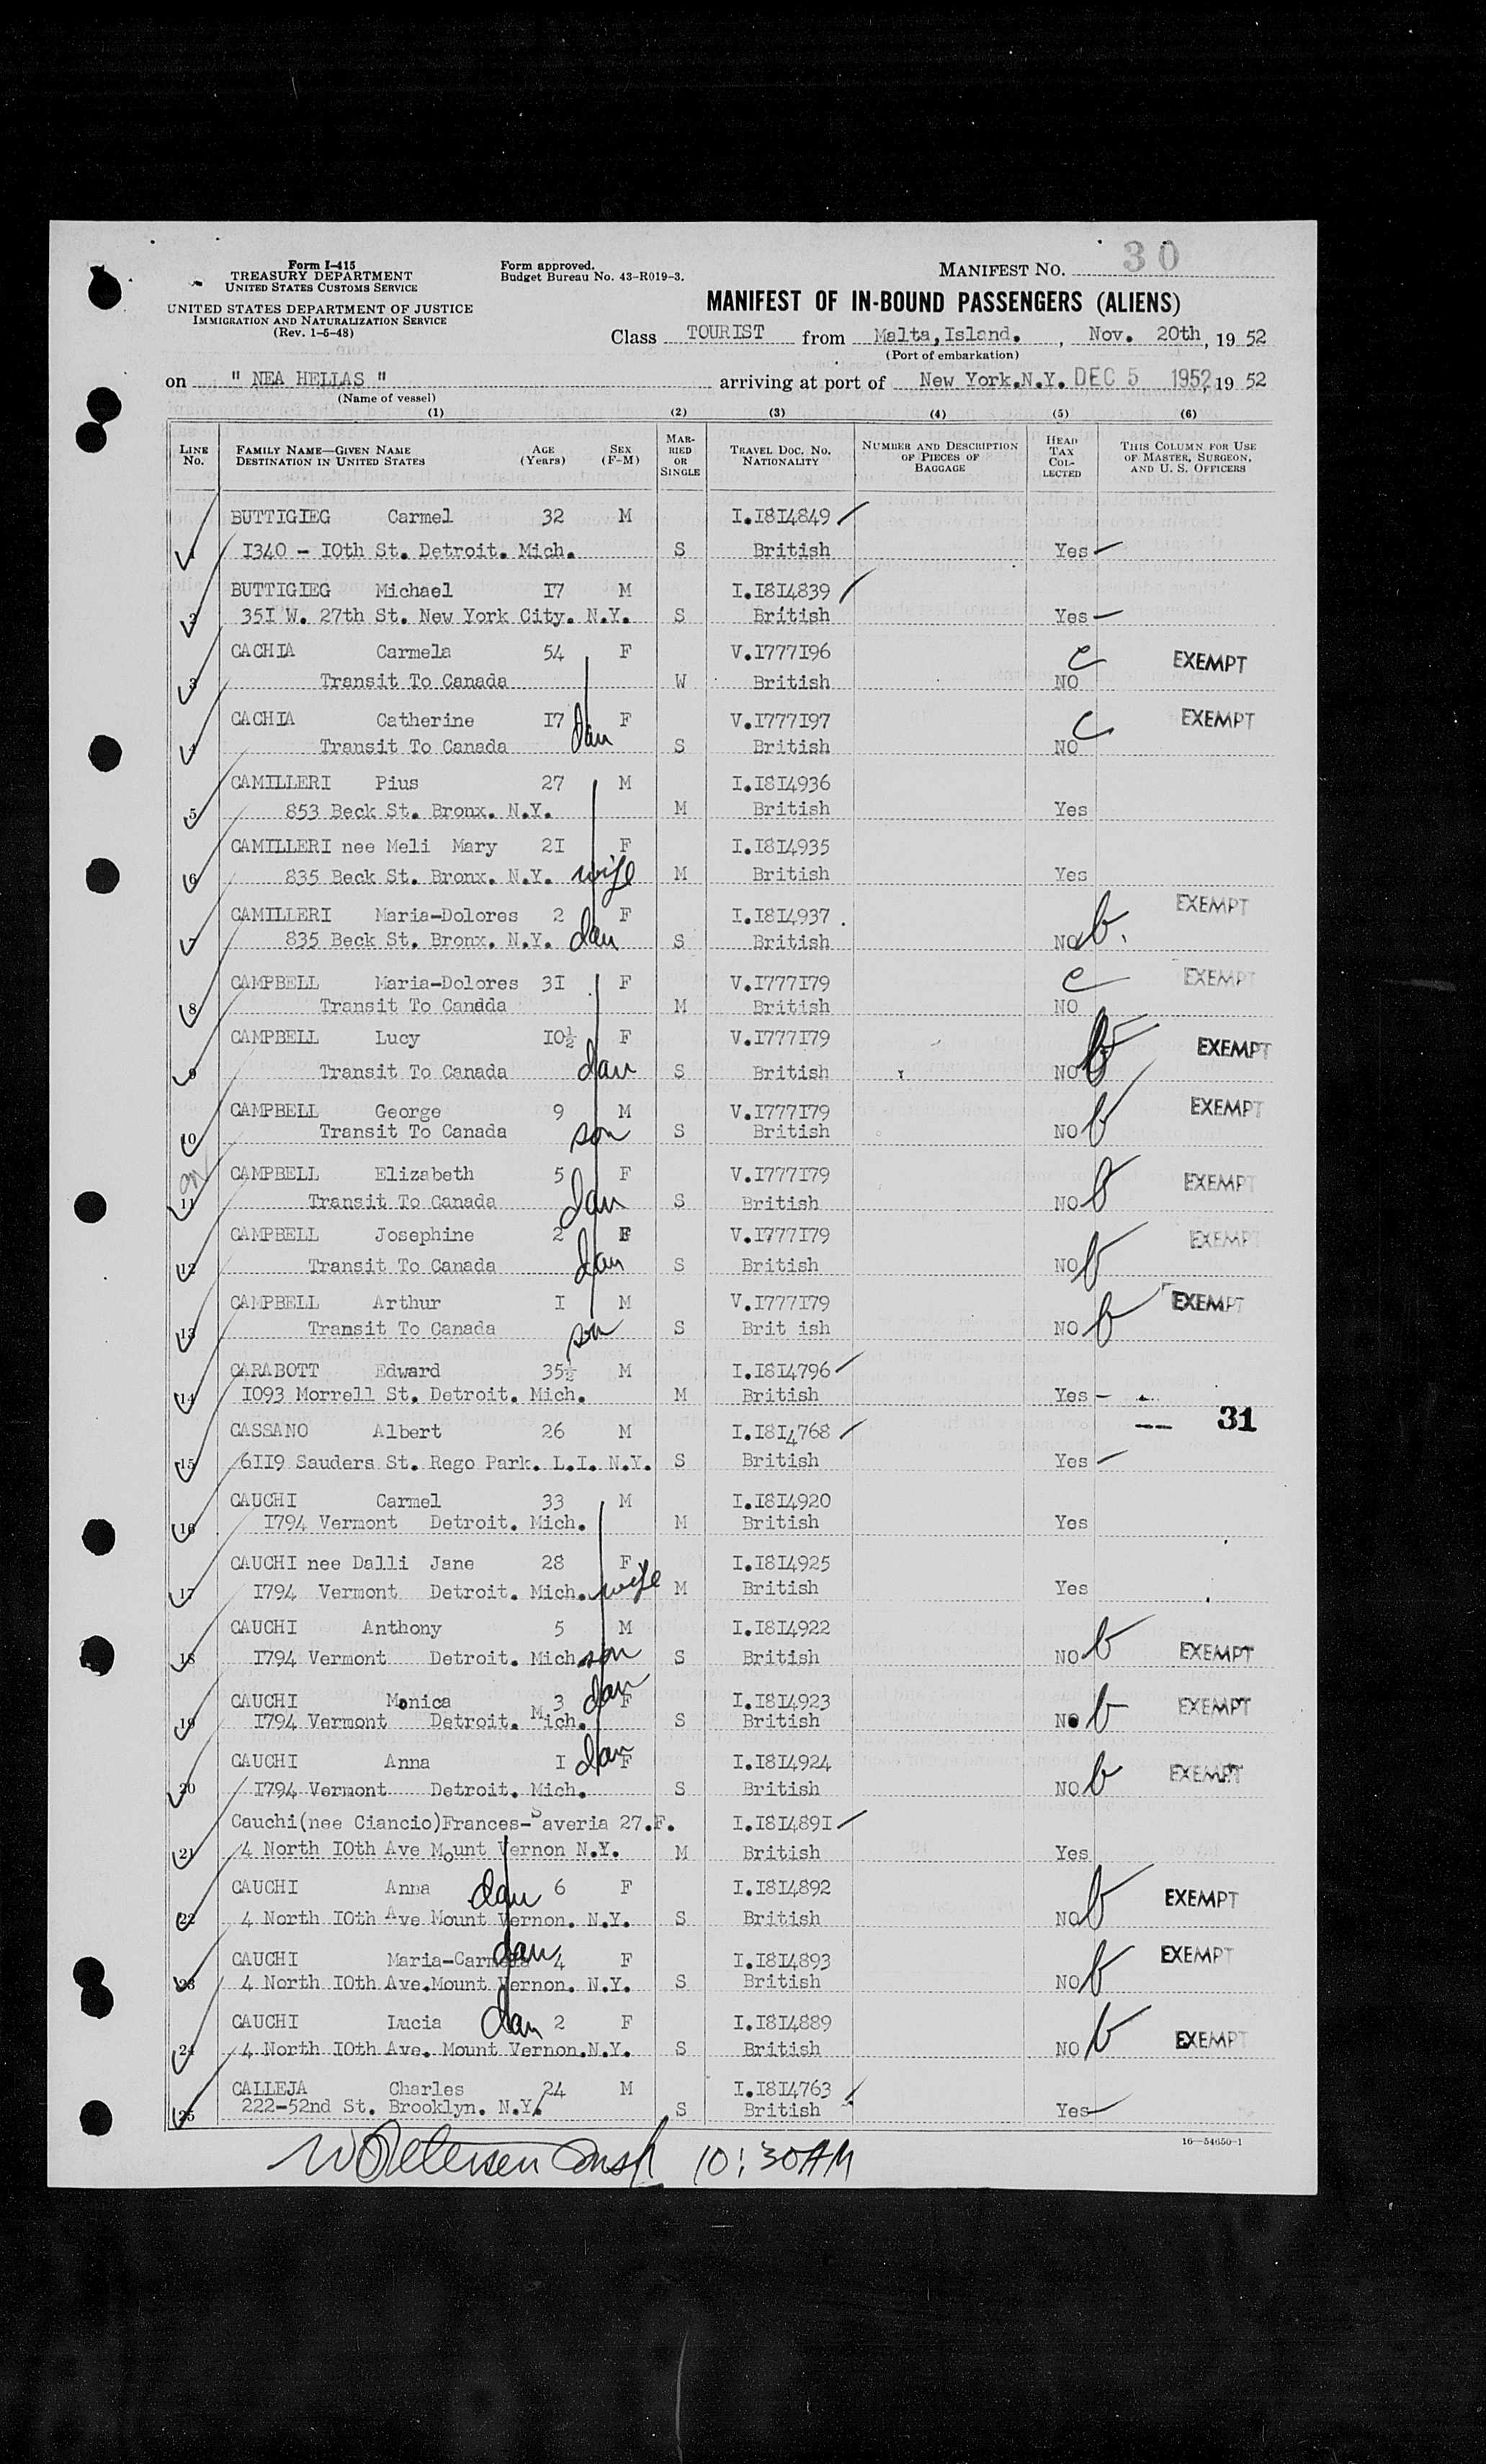 Form I-415
TREASURY DEPARTMENT
UNITED STATES CUSTOMS SERVICE
UNITED STATES DEPARTMENT OF JUSTICE
IMMIGRATION AND NATURALIZATION SERVICE
(Rev. 1-5-48)
Form approved.
Budget Bureau No. 43-R019-3.
MANIFEST NO. 30
MANIFEST OF IN-BOUND PASSENGERS (ALIENS)
Class TOURIST from Malta, Island. , Nov. 20th, 19 52
(Port of embarkation)
on " NEA HELLAS " arriving at port of New York.N.Y. DEC 5 1952, 19 52
(Name of vessel)
(1) (2) (3) (4) (5) (6)
LINE No. FAMILY NAME—GIVEN NAME DESTINATION IN UNITED STATES AGE (Years) SEX (F-M) MARRIED OR SINGLE TRAVEL DOC. NO. NATIONALITY NUMBER AND DESCRIPTION OF PIECES OF BAGGAGE HEAD TAX COLLECTED THIS COLUMN FOR USE OF MASTER, SURGEON, AND U. S. OFFICERS
BUTTIGIEG Carmel 32 M I.I8I4849
1 I340 - I0th St. Detroit. Mich. S British Yes
BUTTIGIEG Michael I7 M I.I8I4839
2 35I W. 27th St. New York City. N.Y. S British Yes
CACHIA Carmela 54 F V.I777I96 c EXEMPT
3 Transit To Canada W British NO
CACHIA Catherine I7 dau F V.I777I97 c EXEMPT
4 Transit To Canada S British NO
CAMILLERI Pius 27 M I.I8I4936
5 853 Beck St. Bronx. N.Y. M British Yes
CAMILLERI nee Meli Mary 2I F I.I8I4935
6 835 Beck St. Bronx. N.Y. wife M British Yes
CAMILLERI Maria-Dolores 2 F I.I8I4937 . EXEMPT
7 835 Beck St. Bronx. N.Y. dau S British NO b.
CAMPBELL Maria-Dolores 3I F V.I777I79 c EXEMPT
8 Transit To Canada M British NO
CAMPBELL Lucy I0½ F V.I777I79 EXEMPT
9 Transit To Canada dau S British NO b
CAMPBELL George 9 M V.I777I79 EXEMPT
10 Transit To Canada son S British NO b
CAMPBELL Elizabeth 5 F V.I777I79 EXEMPT
11 Transit To Canada dau S British NO b
CAMPBELL Josephine 2 F V.I777I79 EXEMPT
12 Transit To Canada dau S British NO b
CAMPBELL Arthur I M V.I777I79 EXEMPT
13 Transit To Canada son S Brit ish NO b
CARABOTT Edward 35½ M I.I8I4796
14 I093 Morrell St. Detroit. Mich. M British Yes
31
CASSANO Albert 26 M I.I8I4768
15 6II9 Sauders St. Rego Park. L.I. N.Y. S British Yes
CAUCHI Carmel 33 M I.I8I4920
16 I794 Vermont Detroit. Mich. M British Yes
CAUCHI nee Dalli Jane 28 F I.I8I4925
17 I794 Vermont Detroit. Mich. wife M British Yes
CAUCHI Anthony 5 M I.I8I4922
18 I794 Vermont Detroit. Mich son S British NO b EXEMPT
CAUCHI Monica 3 dau F I.I8I4923 EXEMPT
19 I794 Vermont Detroit. Mich. S British NO b
CAUCHI Anna I dau F I.I8I4924 EXEMPT
20 I794 Vermont Detroit. Mich. S British NO b
Cauchi(nee Ciancio)Frances-Saveria 27.F. I.I8I489I
21 4 North I0th Ave Mount Vernon N.Y. M British Yes
CAUCHI Anna dau 6 F I.I8I4892 EXEMPT
22 4 North I0th Ave Mount Vernon. N.Y. S British NO b
CAUCHI Maria-Carmela dau 4 F I.I8I4893 EXEMPT
23 4 North I0th Ave.Mount Vernon. N.Y. S British NO b
CAUCHI Lucia dau 2 F I.I8I4889 EXEMPT
24 4 North I0th Ave. Mount Vernon.N.Y. S British NO b
CALLEJA Charles 24 M I.I8I4763
25 222-52nd St. Brooklyn. N.Y. S British Yes
16—54650-1
Petersen Insp 10:30AM